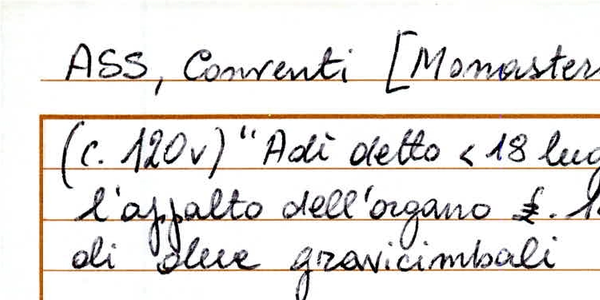 ASS, Conventi [Monaster
(c. 120v) "Adì detto < 18 lug
l'appalto dell'organo £. 1
di due gravicimbali